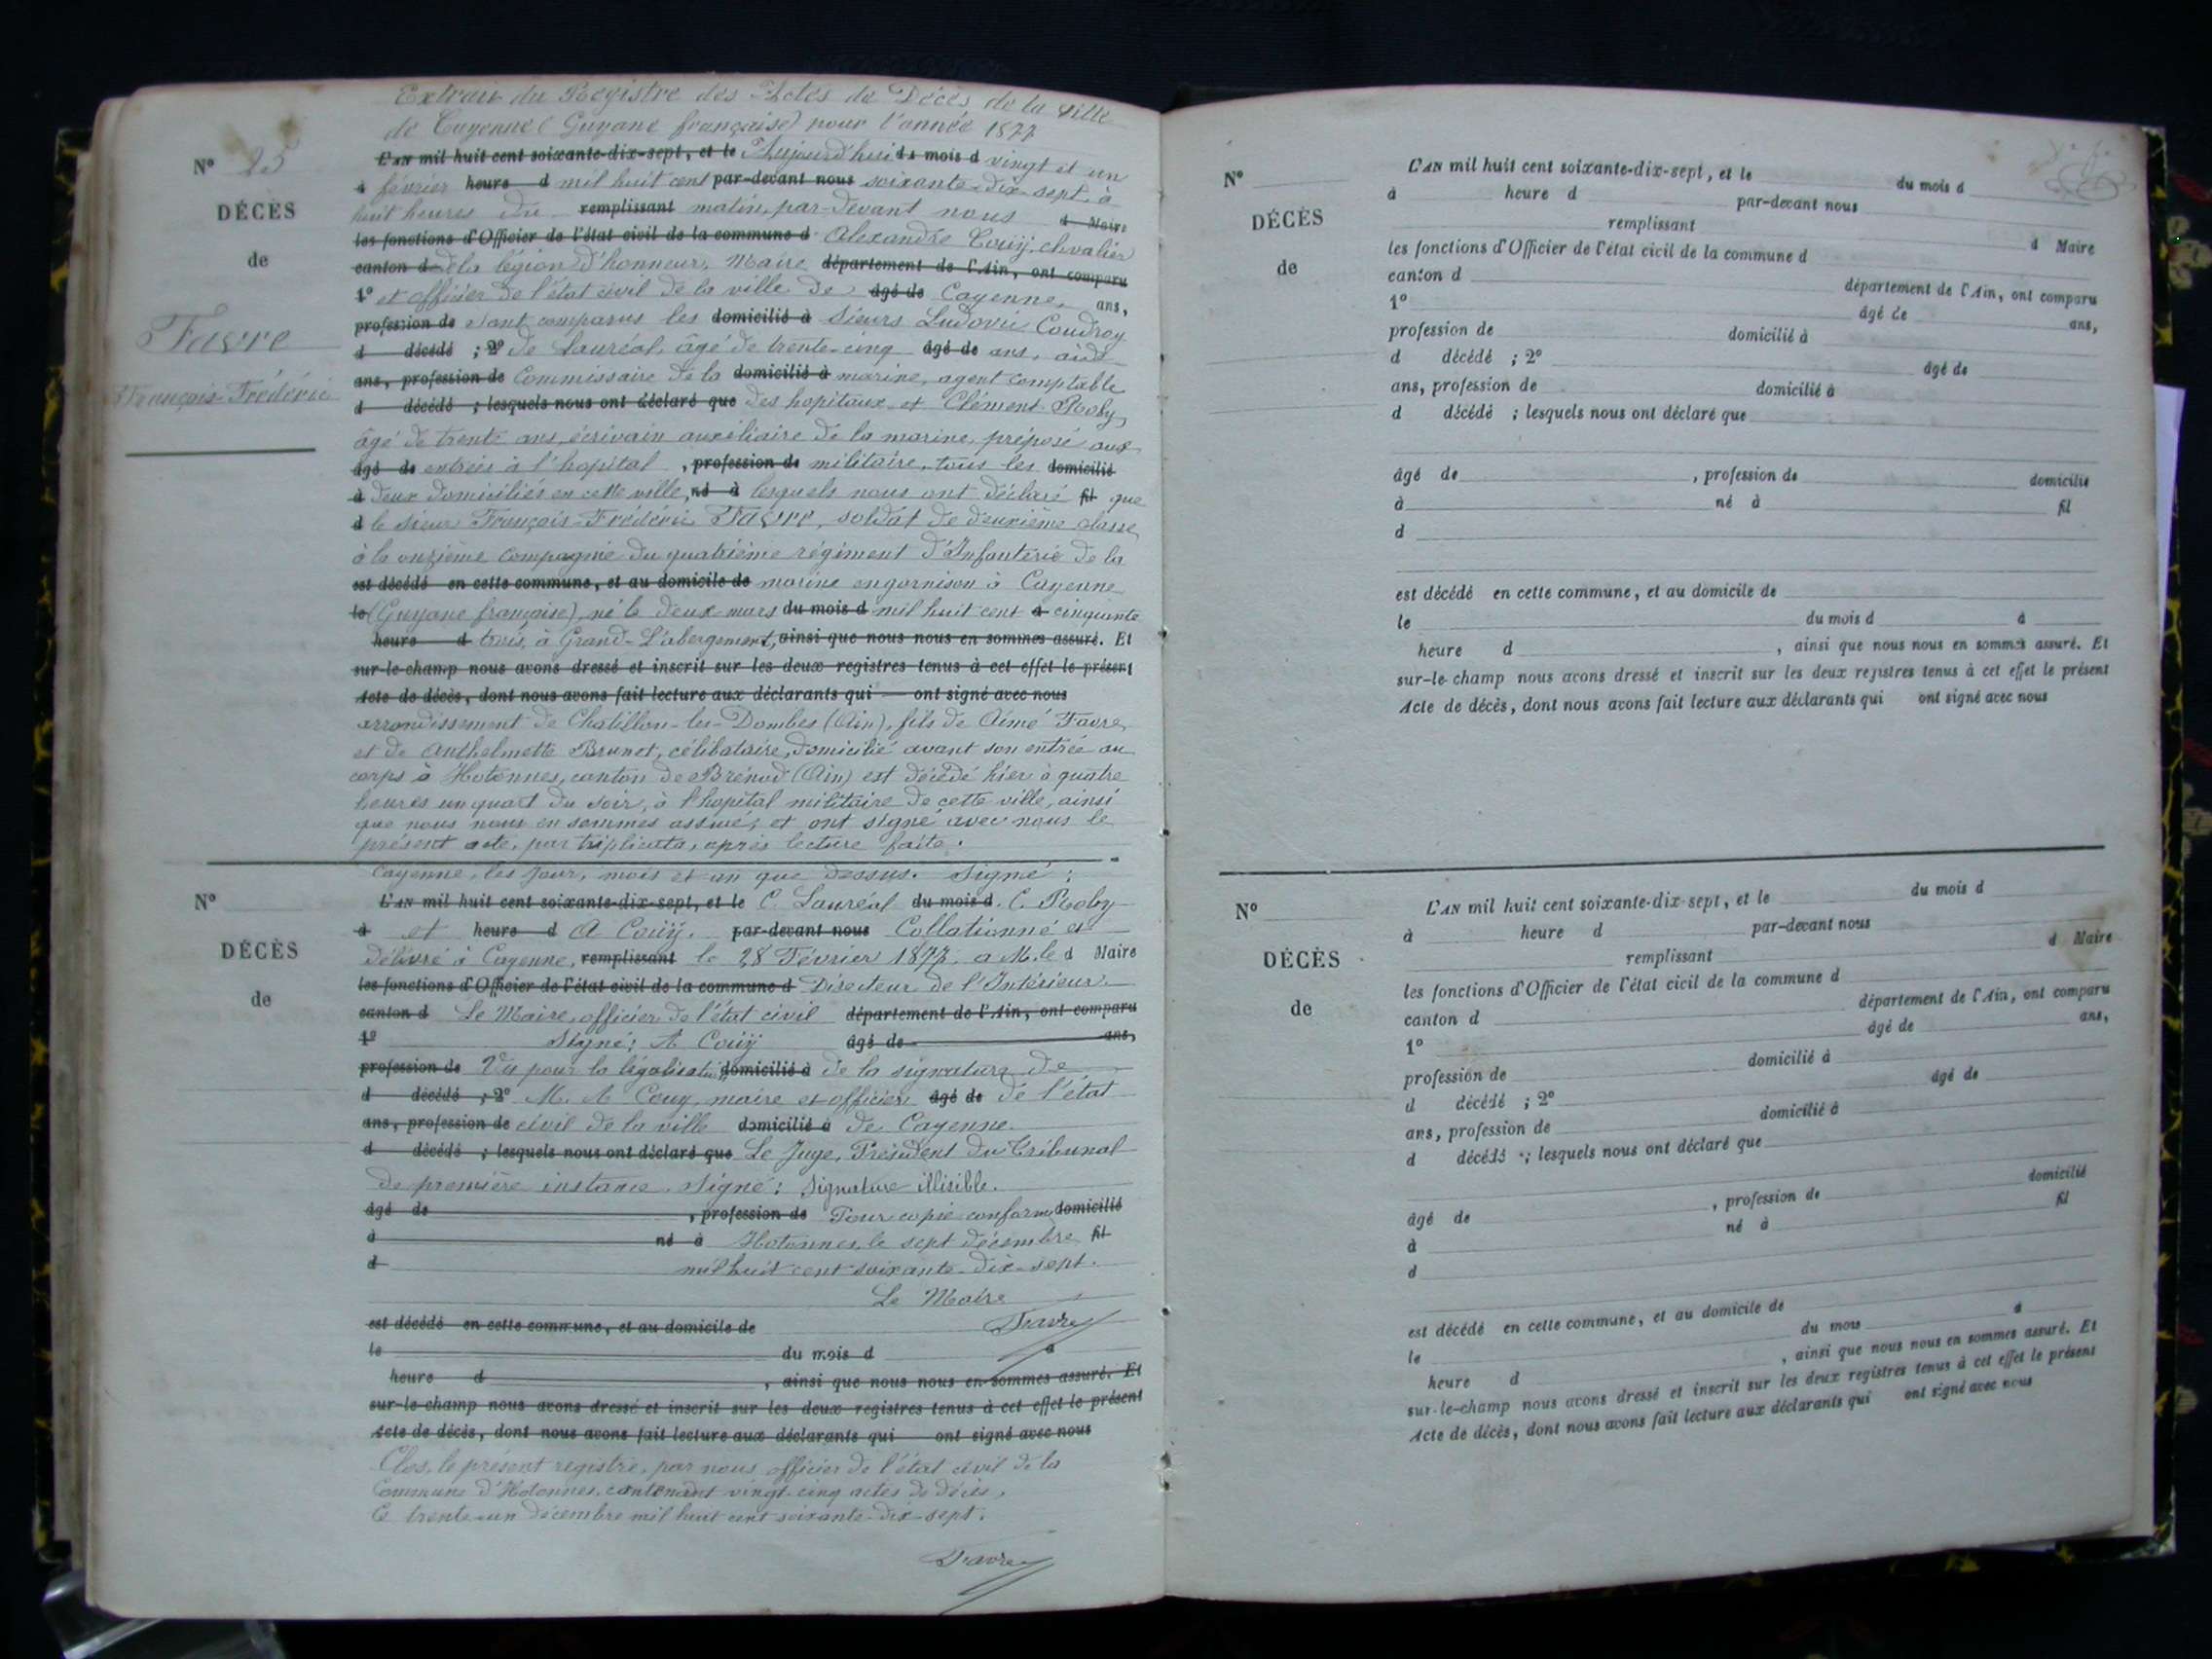 Extrait du Registre des Actes de Décès de la ville
de Cayenne (Guyane française) pour l'année 1877
N° 25
L'AN mil huit cent soixante-dix-sept, et le Aujourd'hui du mois d vingt et un
à février heure d mil huit cent par-devant nous soixante-dix-sept, à
DÉCÈS
huit heures du remplissant matin, par-devant nous d Maire
les fonctions d'Officier de l'état civil de la commune d Alexandre Couÿ, chevalier
de
canton d de la légion d'honneur, Maire département de l'Ain, ont comparu
1° et officier de l'état civil de la ville de âgé de Cayenne, ans,
Favre
profession de sont comparus les domicilié à Sieurs Ludovic Coudroy
d décédé ; 2° de Lauréal, âgé de trente-cinq âgé de ans, aide
François-Frédéric
ans, profession de Commissaire de la domicilié à marine, agent comptable
d décédé ; lesquels nous ont déclaré que des hopitaux et Clément Roby,
âgé de trente ans, écrivain auxéliaire de la marine, préposé aux
âgé de entrées à l'hopital , profession de militaire, tous les domicilié
à deux domiciliés en cette ville, né à lesquels nous ont déclaré fil que
d le sieur François-Frédéric Favre, soldat de deuxième classe
à la onzième compagnie du quatrième régiment d'Infanterie de la
est décédé en cette commune, et au domicile de marine en garnison à Cayenne
le (Guyane française), né le deux mars du mois d mil huit cent à cinquante
heure d trois, à Grand-L'abergement, ainsi que nous nous en sommes assuré. Et
sur-le-champ nous avons dressé et inscrit sur les deux registres tenus à cet effet le présent
Acte de décès, dont nous avons fait lecture aux déclarants qui ont signé avec nous
arrondissement de Chatillon-les-Dombes (Ain), fils de Aimé Favre
et de Anthelmette Brunet, célibataire, domicilié avant son entrée au
corps à Hotonnes, canton de Brénod (Ain) est décédé hier à quatre
heures un quart du soir, à l'hopital militaire de cette ville, ainsi
que nous nous en sommes assuré; et ont signé avec nous le
présent acte, par triplicata, après lecture faite.
Cayenne, les jour, mois et an que dessus. Signé :
N°
L'AN mil huit cent soixante-dix-sept, et le C. Lauréal du mois d. C. Roby
à et heure d A Couÿ. par-devant nous Collationné et
DÉCÈS
délivré à Cayenne, remplissant le 28 Février 1877, a M. le d Maire
les fonctions d'Officier de l'état civil de la commune d Directeur de l'Intérieur.
de
canton d Le Maire, officier de l'état civil département de l'Ain, ont comparu
1° Signé; A Couÿ âgé de ans,
profession de Vu pour la légalisation domicilié à de la signature de
d décédé ; 2° M. A Couy, maire et officier âgé de de l'état
ans, profession de civil de la ville domicilié à de Cayenne.
d décédé ; lesquels nous ont déclaré que Le Juge, Président du Tribunal
de première instance. Signé: Signature illisible.
âgé de , profession de Pour copie conforme domicilié
à né à Hotonnes, le sept décembre fil
d mil huit cent soixante-dix-sept.
Le Maire
est décédé en cette commune, et au domicile de Favre
le du mois d à
heure d , ainsi que nous nous en sommes assuré. Et
sur-le-champ nous avons dressé et inscrit sur les deux registres tenus à cet effet le présent
Acte de décès, dont nous avons fait lecture aux déclarants qui ont signé avec nous
Clos, le présent registre, par nous officier de l'état civil de la
Commune d'Hotonnes, contenant vingt-cinq actes de décès,
Ce trente-un décembre mil huit cent soixante-dix-sept.
Favre
N°
L'AN mil huit cent soixante-dix-sept, et le du mois d
à heure d par-devant nous
DÉCÈS
remplissant
les fonctions d'Officier de l'état civil de la commune d d Maire
de
canton d département de l'Ain, ont comparu
1° âgé de ans,
profession de domicilié à
d décédé ; 2° âgé de
ans, profession de domicilié à
d décédé ; lesquels nous ont déclaré que
âgé de , profession de domicilié
à né à fil
d
est décédé en cette commune, et au domicile de
le du mois d à
heure d , ainsi que nous nous en sommes assuré. Et
sur-le-champ nous avons dressé et inscrit sur les deux registres tenus à cet effet le présent
Acte de décès, dont nous avons fait lecture aux déclarants qui ont signé avec nous
N°
L'AN mil huit cent soixante-dix-sept, et le du mois d
à heure d par-devant nous
DÉCÈS
remplissant d Maire
les fonctions d'Officier de l'état civil de la commune d
de
canton d département de l'Ain, ont comparu
1° âgé de ans,
profession de domicilié à
d décédé ; 2° âgé de
ans, profession de domicilié à
d décédé ; lesquels nous ont déclaré que
âgé de , profession de domicilié
à né à fil
d
est décédé en cette commune, et au domicile de
le du mois à
heure d , ainsi que nous nous en sommes assuré. Et
sur-le-champ nous avons dressé et inscrit sur les deux registres tenus à cet effet le présent
Acte de décès, dont nous avons fait lecture aux déclarants qui ont signé avec nous